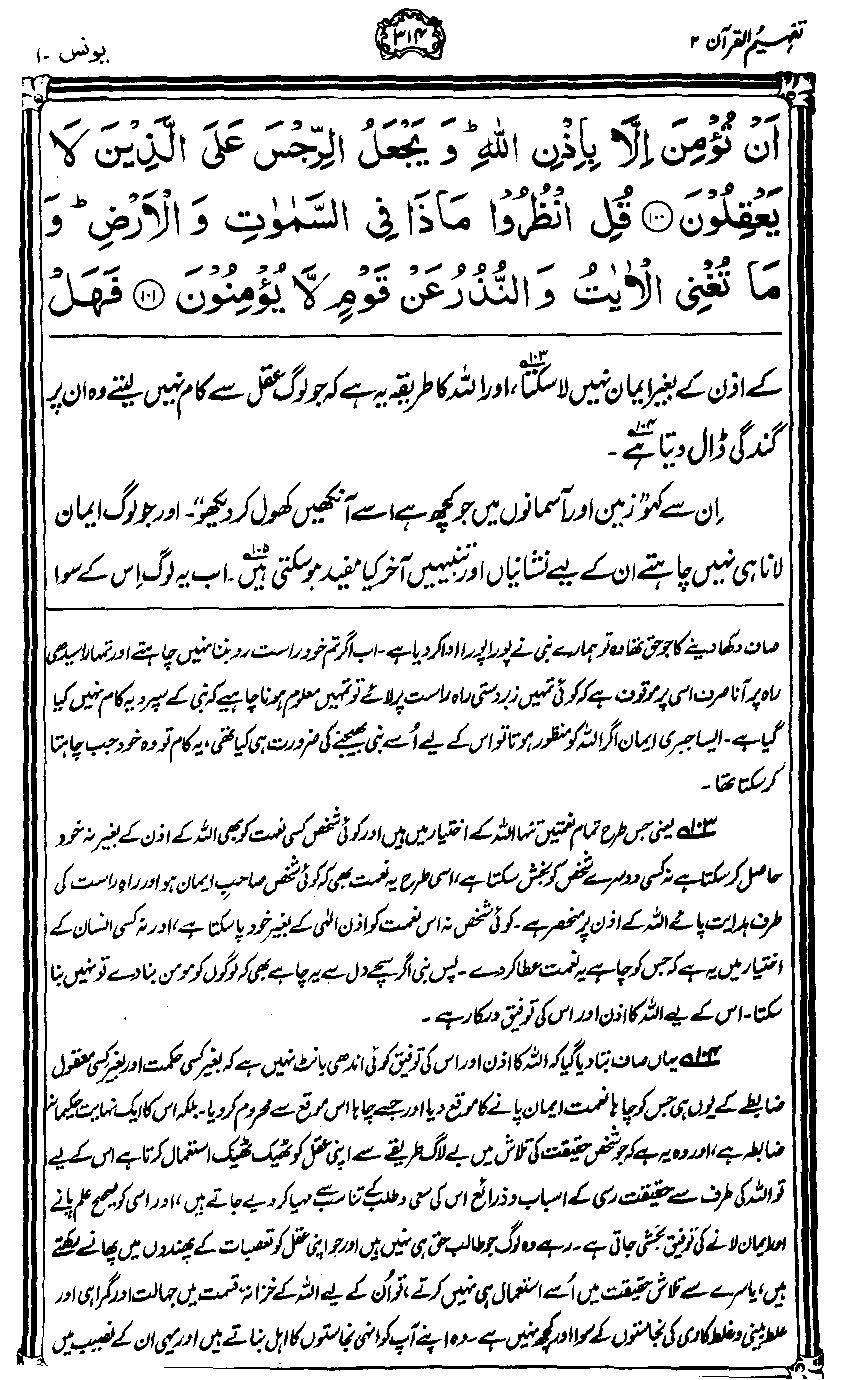 تفہیم القرآن ۲
۳۱۴
یونس ۱۰
اَنْ تُؤْمِنَ اِلَّا بِاِذْنِ اللّٰهِ ؕ وَ يَجْعَلُ الرِّجْسَ عَلَى الَّذِيْنَ لَا
يَعْقِلُوْنَ ۝۱۰۰ قُلِ انْظُرُوْا مَاذَا فِی السَّمٰوٰتِ وَ الْاَرْضِ ؕ وَ
مَا تُغْنِی الْاٰيٰتُ وَ النُّذُرُ عَنْ قَوْمٍ لَّا يُؤْمِنُوْنَ ۝۱۰۱ فَهَلْ
کے اذن کے بغیر ایمان نہیں لا سکتا۱۰۳، اور اللہ کا طریقہ یہ ہے کہ جو لوگ عقل سے کام نہیں لیتے وہ ان پر
گندگی ڈال دیتا ہے۱۰۴۔
اِن سے کہو ”زمین اور آسمانوں میں جو کچھ ہے اسے آنکھیں کھول کر دیکھو“۔ اور جو لوگ ایمان
لانا ہی نہیں چاہتے ان کے لیے نشانیاں اور تنبیہیں آخر کیا مفید ہو سکتی ہیں۱۰۵۔ اب یہ لوگ اِس کے سوا
صاف دکھا دینے کا جو حق تھا وہ تو ہمارے نبی نے پورا پورا ادا کر دیا ہے۔ اب اگر تم خود راست رو بننا نہیں چاہتے اور تمہارا سیدھی
راہ پر آنا صرف اسی پر موقوف ہے کہ کوئی تمہیں زبردستی راہ راست پر لائے تو تمہیں معلوم ہونا چاہیے کہ نبی کے سپرد یہ کام نہیں کیا
گیا ہے۔ ایسا جبری ایمان اگر اللہ کو منظور ہوتا تو اس کے لیے اُسے نبی بھیجنے کی ضرورت ہی کیا تھی، یہ کام تو وہ خود جب چاہتا
کر سکتا تھا۔
۱۰۳؎ یعنی جس طرح تمام نعمتیں تنہا اللہ کے اختیار میں ہیں اور کوئی شخص کسی نعمت کو بھی اللہ کے اذن کے بغیر نہ خود
حاصل کر سکتا ہے نہ کسی دوسرے شخص کو بخش سکتا ہے، اسی طرح یہ نعمت بھی کہ کوئی شخص صاحبِ ایمان ہو اور راہِ راست کی
طرف ہدایت پائے اللہ کے اذن پر منحصر ہے۔ کوئی شخص نہ اس نعمت کو اذن الٰہی کے بغیر خود پا سکتا ہے، اور نہ کسی انسان کے
اختیار میں یہ ہے کہ جس کو چاہے یہ نعمت عطا کر دے۔ پس نبی اگر سچے دل سے یہ چاہے بھی کہ لوگوں کو مومن بنا دے تو نہیں بنا
سکتا۔ اس کے لیے اللہ کا اذن اور اس کی توفیق درکار ہے۔
۱۰۴؎ یہاں صاف بتا دیا گیا کہ اللہ کا اذن اور اس کی توفیق کوئی اندھی بانٹ نہیں ہے کہ بغیر کسی حکمت اور بغیر کسی معقول
ضابطے کے یوں ہی جس کو چاہا نعمت ایمان پانے کا موقع دیا اور جسے چاہا اس موقع سے محروم کر دیا۔ بلکہ اس کا ایک نہایت حکیمانہ
ضابطہ ہے، اور وہ یہ ہے کہ جو شخص حقیقت کی تلاش میں بے لاگ طریقے سے اپنی عقل کو ٹھیک ٹھیک استعمال کرتا ہے اس کے لیے
تو اللہ کی طرف سے حقیقت رسی کے اسباب و ذرائع اس کی سعی و طلب کے تناسب سے مہیا کر دیے جاتے ہیں، اور اسی کو صحیح علم پانے
اور ایمان لانے کی توفیق بخشی جاتی ہے۔ رہے وہ لوگ جو طالب حق ہی نہیں ہیں اور جو اپنی عقل کو تعصبات کے پھندوں میں پھانسے رکھتے
ہیں، یا سرے سے تلاش حقیقت میں اُسے استعمال ہی نہیں کرتے، تو اُن کے لیے اللہ کے خزانۂ قسمت میں جہالت اور گمراہی اور
غلط بینی و غلط کاری کی نجاستوں کے سوا اور کچھ نہیں ہے۔ وہ اپنے آپ کو انہی نجاستوں کا اہل بناتے ہیں اور یہی ان کے نصیب میں